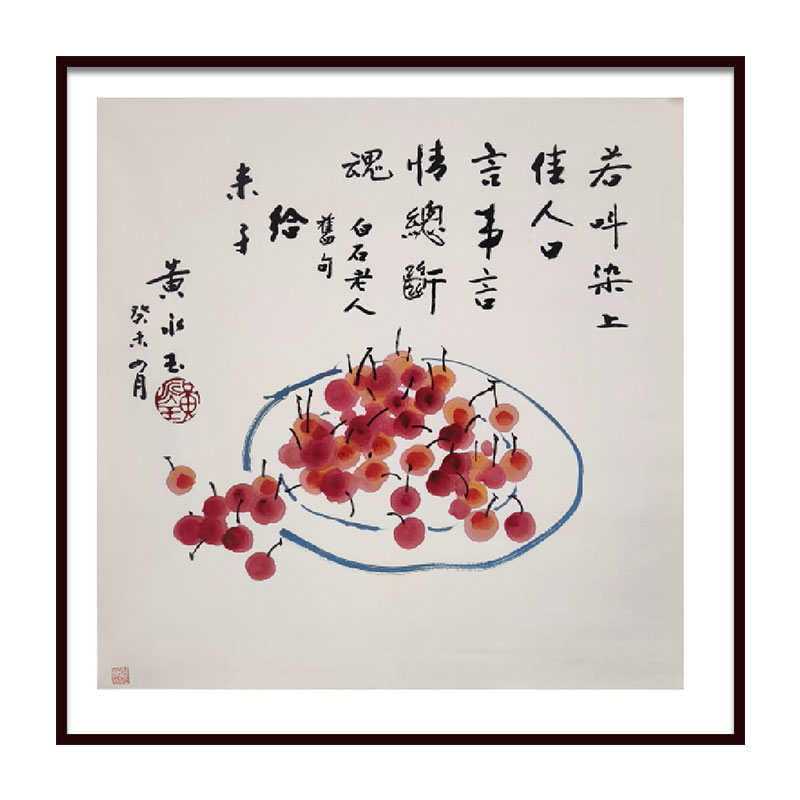 若叫染上
佳人口
言事言
情總斷
魂
白石老人
舊句
給
子
黃永玉
癸未四月